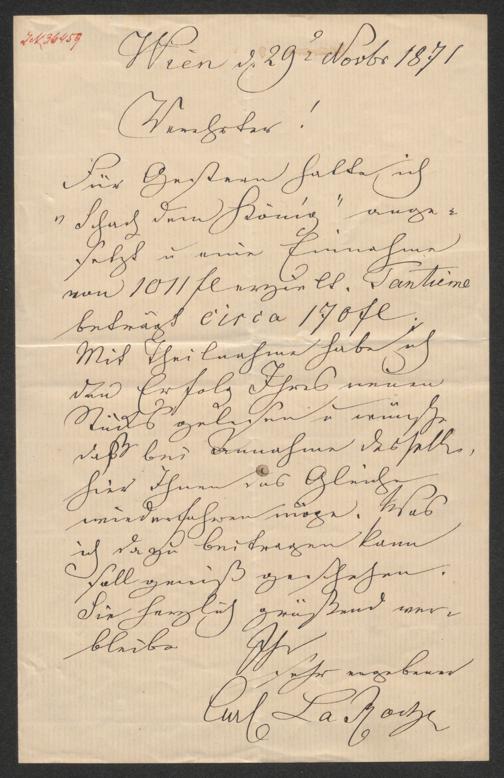 I.N. 36459
Wien d. 29t Novbr 1871
Verehrter!
Für Gestern hatte ich
„Schach dem König" ange=
setzt u eine Einnahme
von 1011 fl erzielt. Tantieme
beträgt circa 170 fl.
Mit Theilnahme habe ich
den Erfolg Ihres neuen
Stücks gelesen u wünsche
daß bei Annahme desselb.
hier Ihnen das Gleiche
wiederfahren möge. Was
ich dazu beitragen kann
soll gewiß geschehen.
Sie herzlich grüßend ver=
bleibe
Ihr
sehr ergebener
Carl La Roche